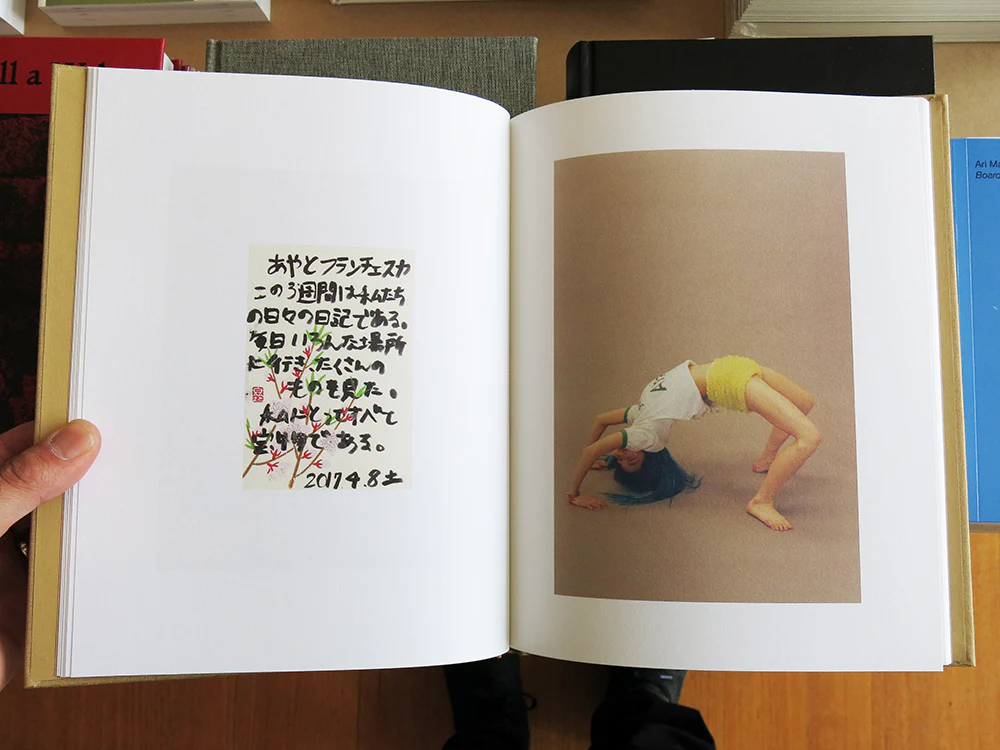 ll a
Ari Ma
Board
あやとフランチェスカ
この3週間は私たち
の日々の日記である。
毎日いろんな場所
に行き、たくさんの
ものを見た。
私にとってすべて
宝物である。
2017 4.8 土